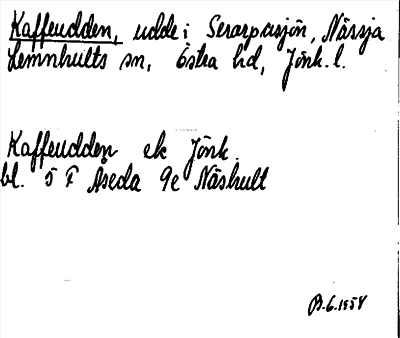 Kaffeudden, udde i Serarpasjön, Nässja
Lemnhults sn, Östra hd, Jönk. l.
Kaffeudden ek Jönk.
bl. 5 F Åseda 9e Näshult
B.6.1958